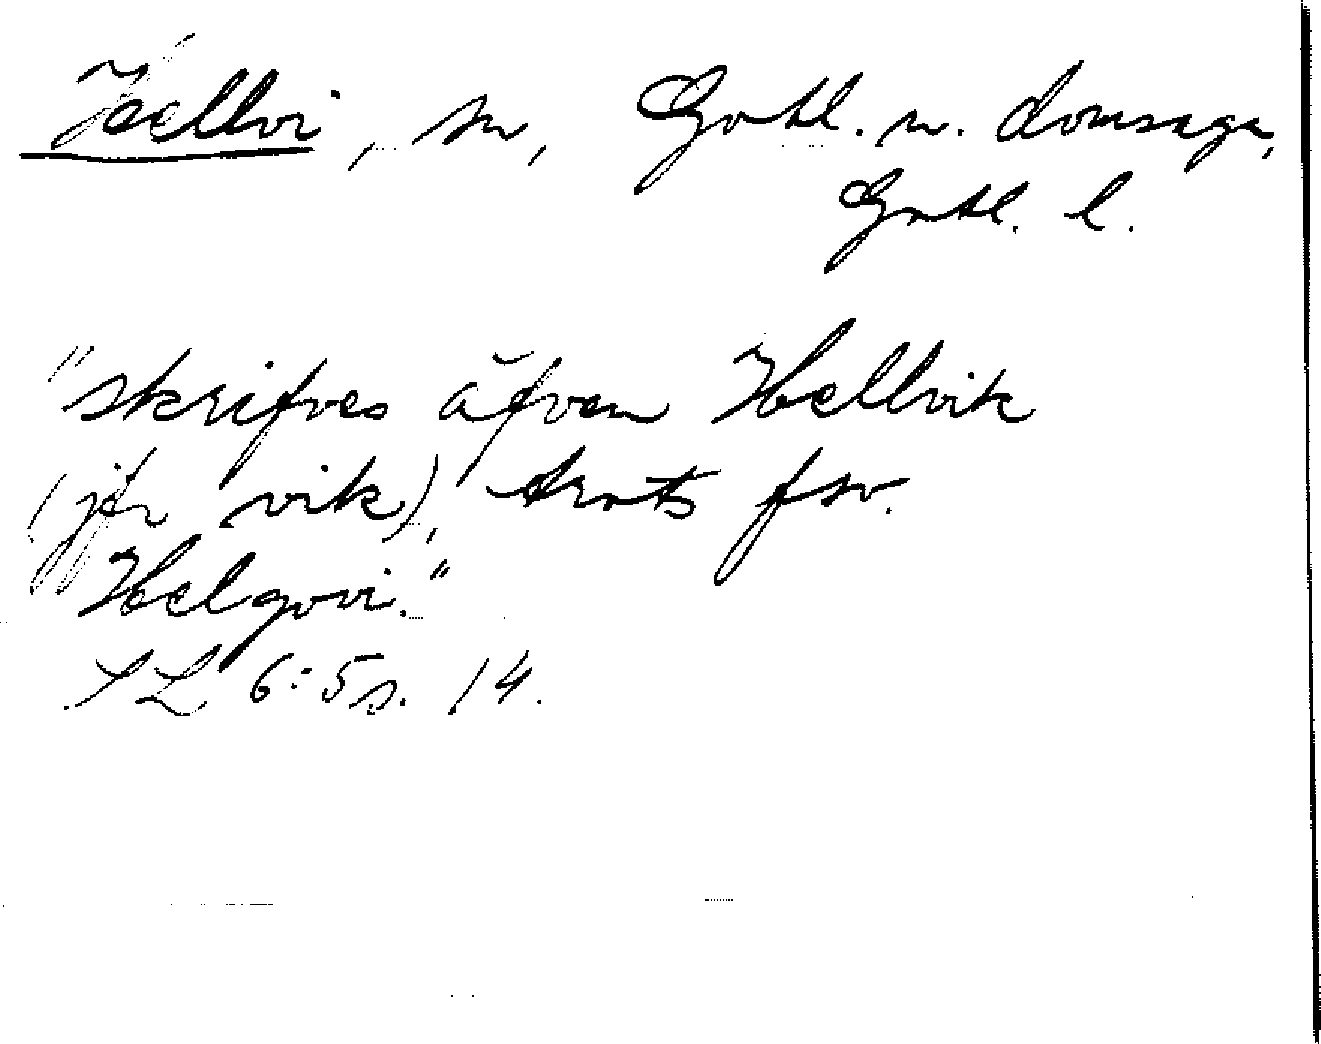 Hellvi, sn, Gotl. n. domsaga,
Gotl. l.
"skrifves äfven Hellvik
(jfr vik), trots fsv.
Helgovi."
SL 6:5 s. 14.